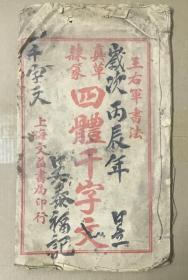 王右軍書法
歲次丙辰年
真草
隸篆
四體千字文
千字文
上海文益書局印行